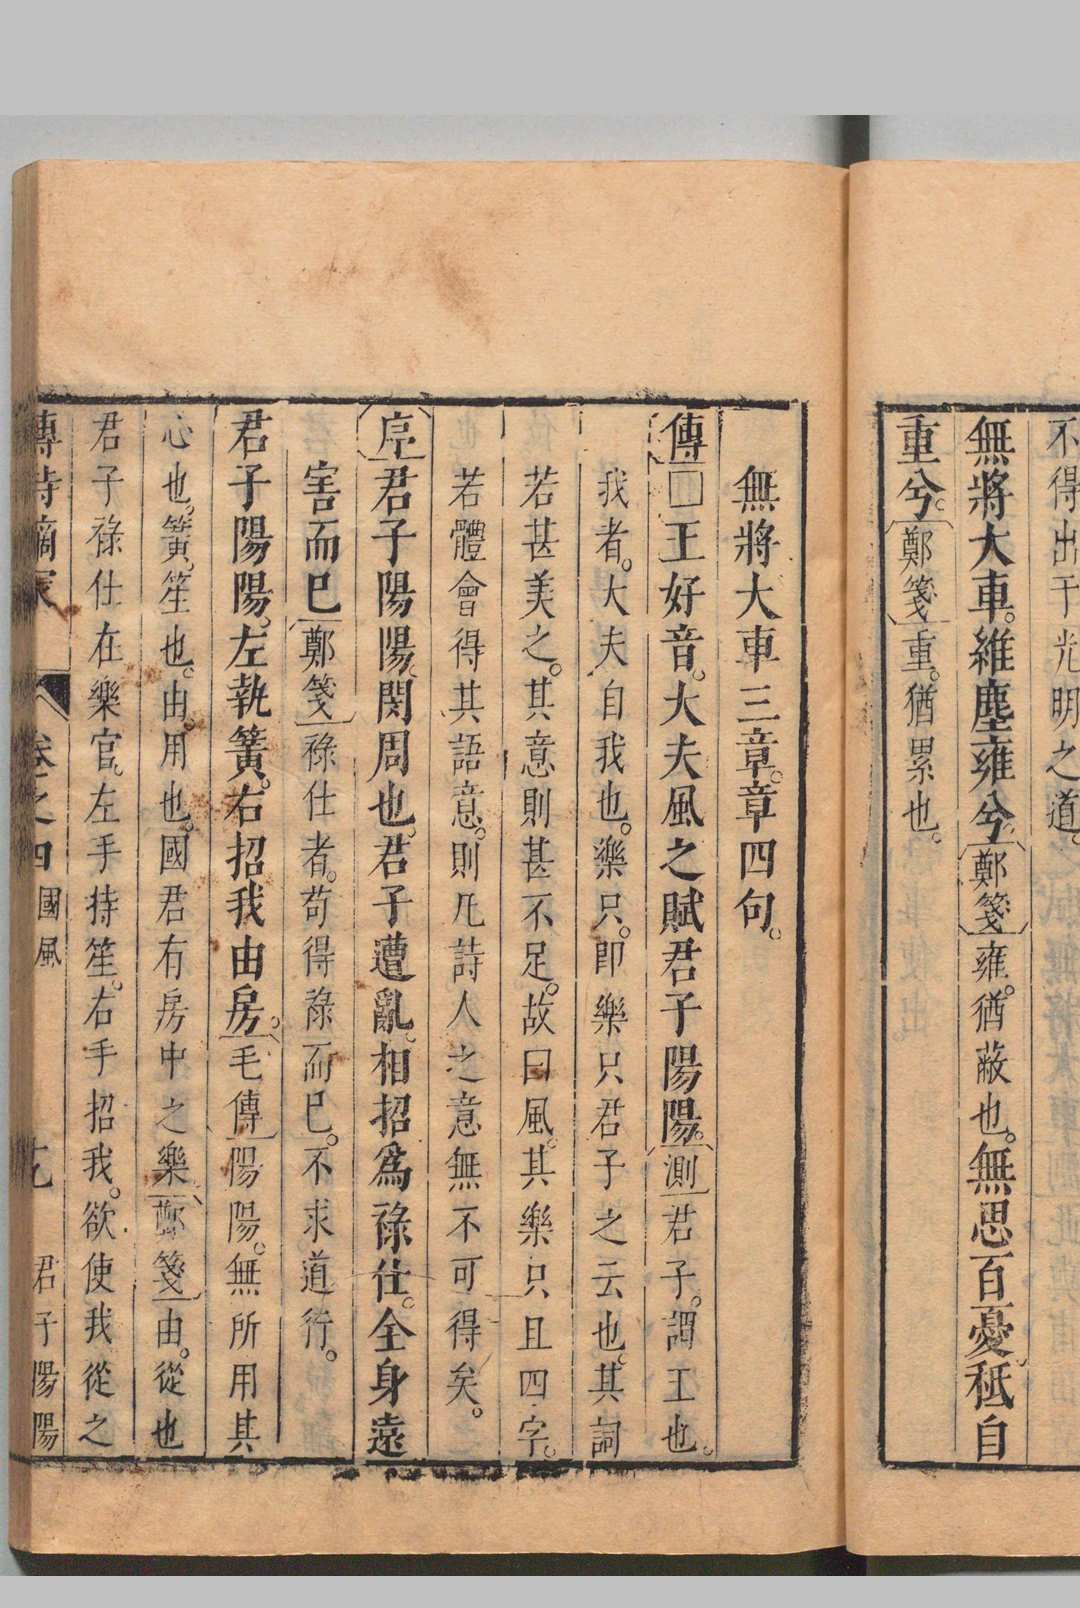 不得出于光明之道。
無將大車。維塵雍兮。鄭箋雍。猶蔽也。無思百憂。秖自
重兮。鄭箋重。猶累也。
無將大車三章。章四句。
傳□王好音。大夫風之賦君子陽陽。測君子。謂王也。
我者。大夫自我也。樂只。即樂只君子之云也。其詞
若甚美之。其意則甚不足。故曰風。其樂只且四字。
若體會得其語意。則凡詩人之意無不可得矣。
序君子陽陽。閔周也。君子遭亂。相招爲祿仕。全身遠
害而已鄭箋祿仕者。苟得祿而已。不求道行。
君子陽陽。左執簧。右招我由房。毛傳陽陽。無所用其
心也。簧。笙也。由。用也。國君有房中之樂鄭箋由。從也
君子祿仕在樂官。左手持笙。右手招我。欲使我從之
傳詩嫡冢 卷之四 國風 君子陽陽